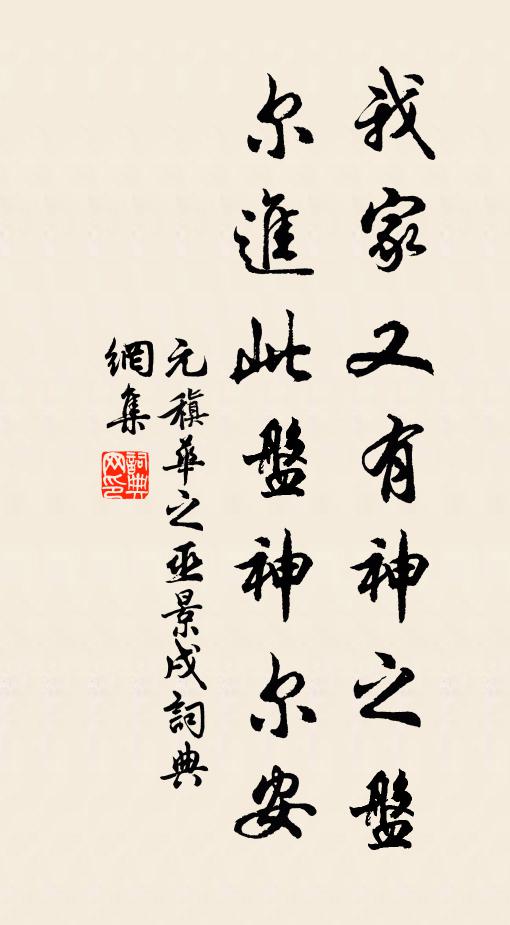 我家又有神之盤
尔進此盤神尔安
元稹華之巫景戌詞典
網集
詞典
网印